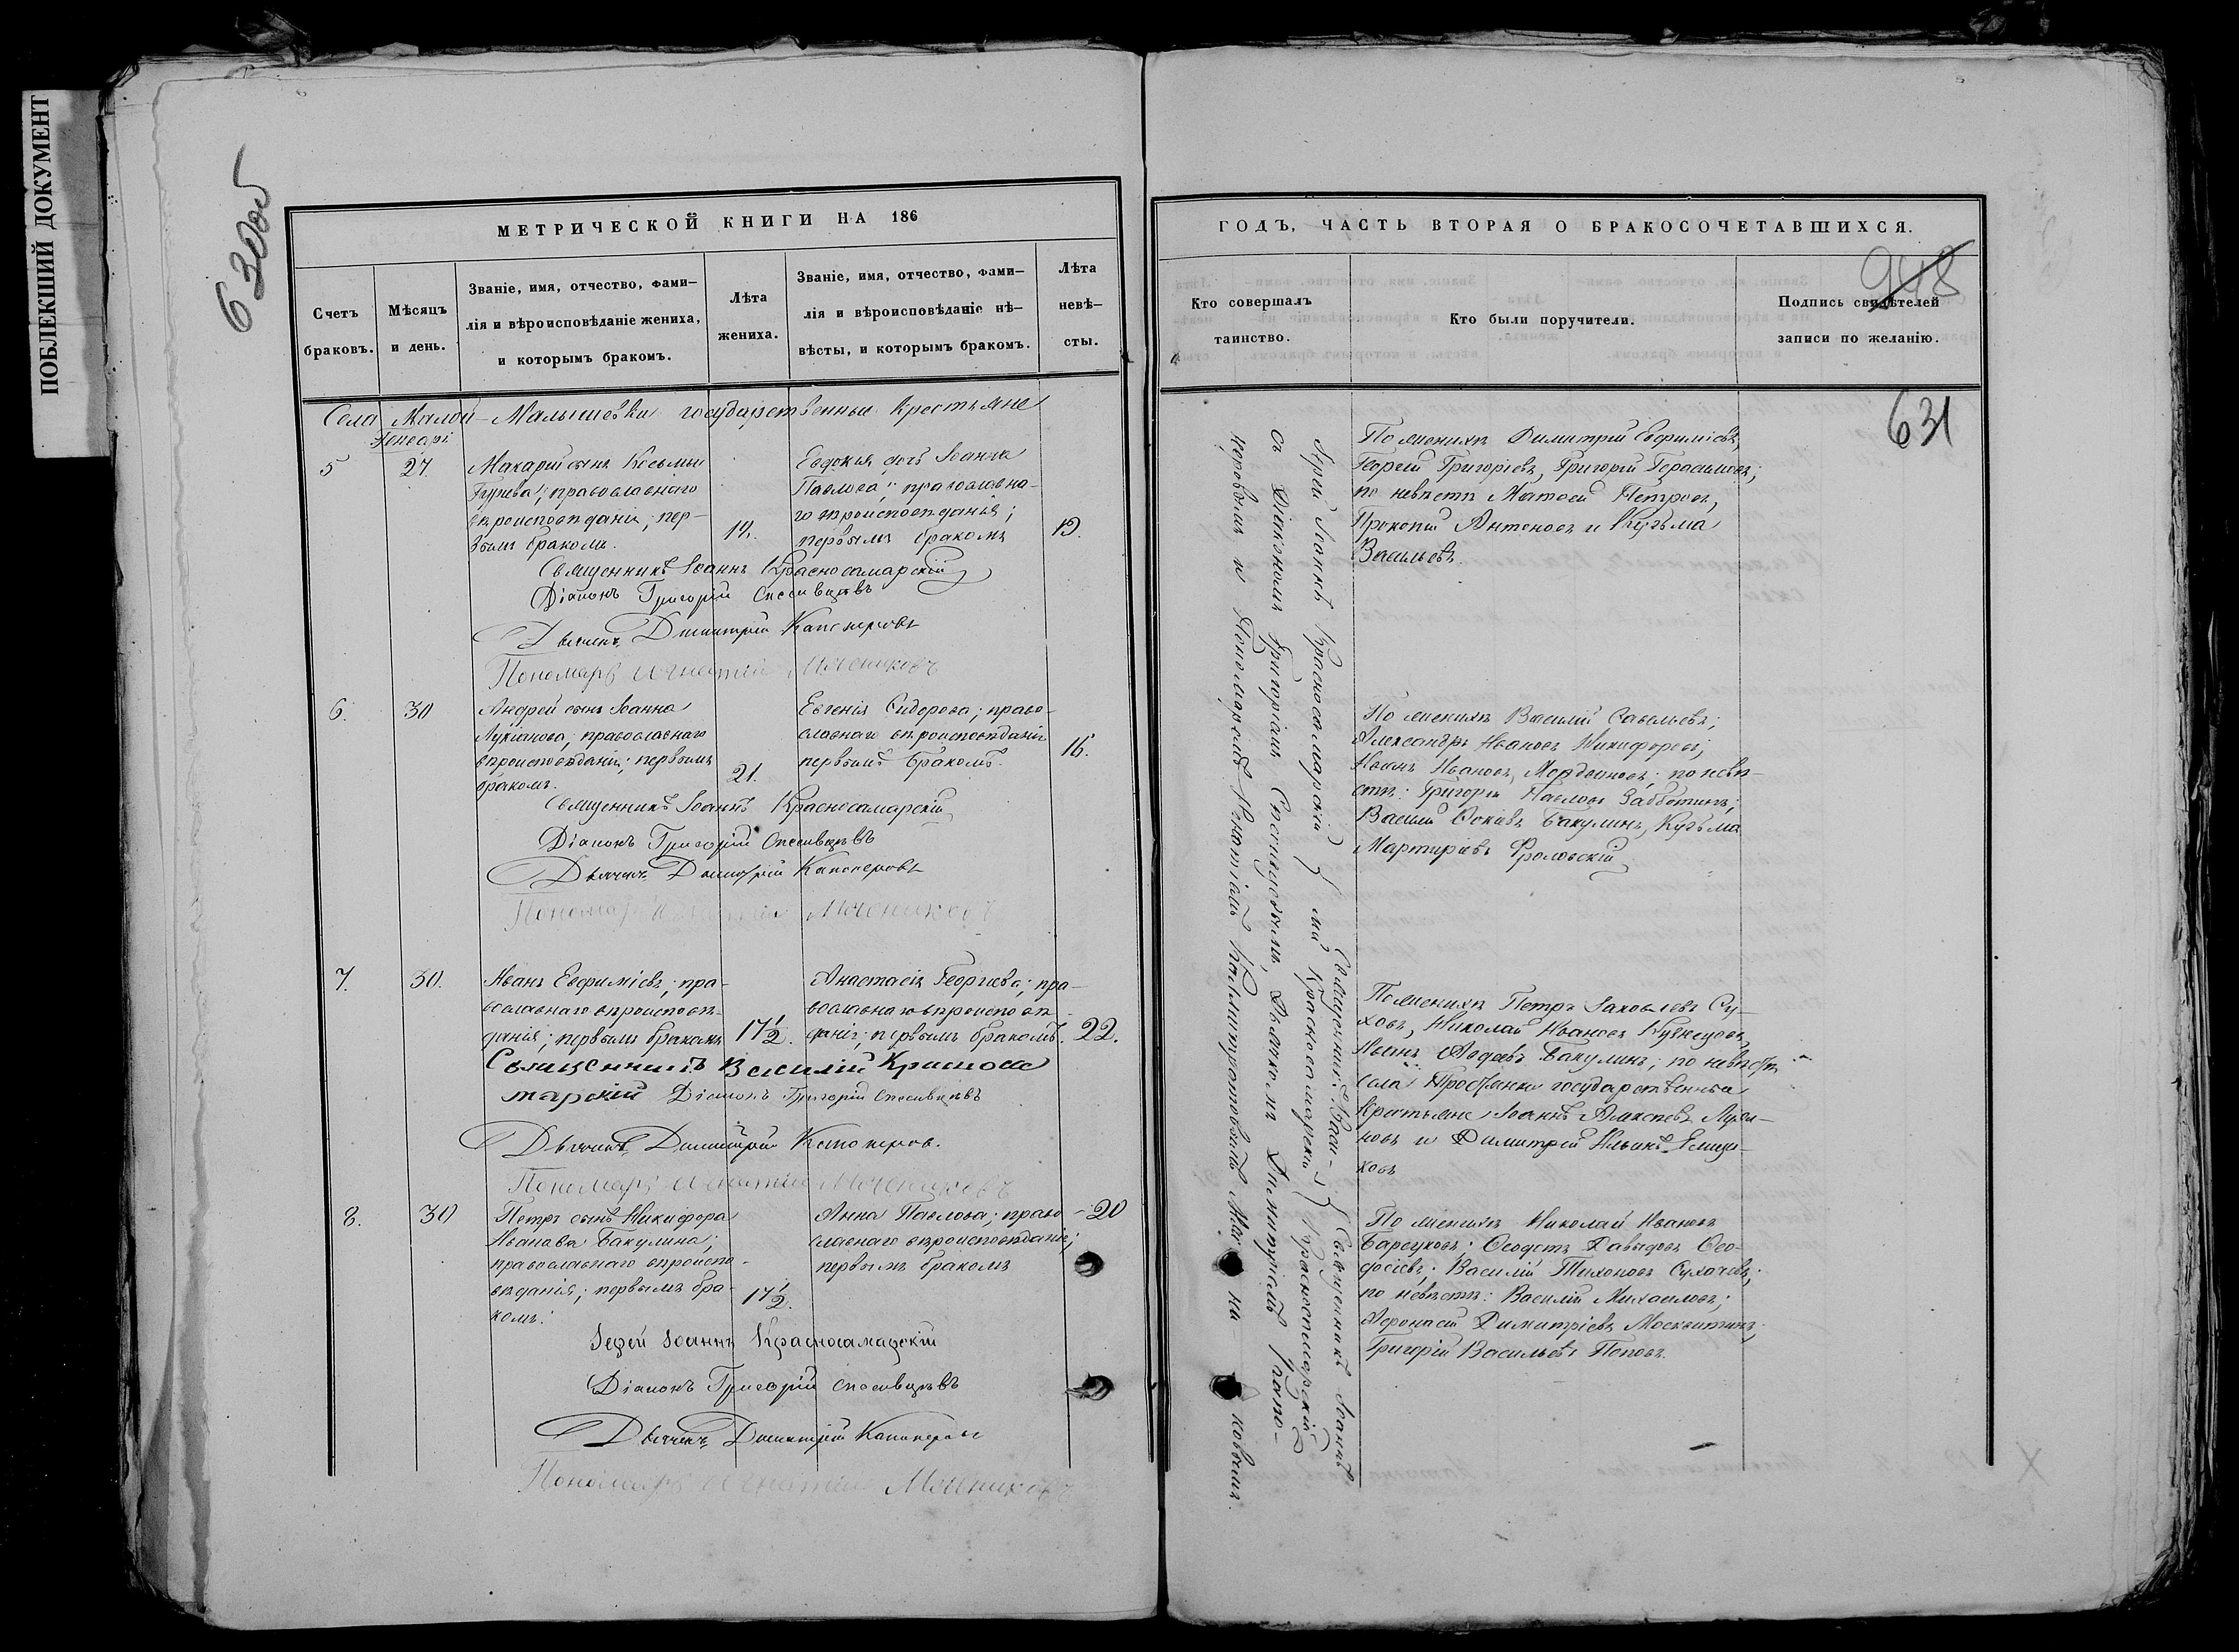 ПОБЛЕКШИЙ ДОКУМЕНТ
630об
МЕТРИЧЕСКОЙ КНИГИ НА 186
Счетъ браковъ.
Мѣсяцъ и день.
Званіе, имя, отчество, фами-
лія и вѣроисповѣданіе жениха,
и которымъ бракомъ.
Лѣта
жениха.
Званіе, имя, отчество, фами-
лія и вѣроисповѣданіе не-
вѣсты, и которымъ бракомъ.
Лѣта
невѣ-
сты.
Села Малой-Малышевки государственные крестьяне
Генваря
5
27.
Макарій сынъ Косьмы
православнаго
вѣроисповѣданія; пер-
вымъ бракомъ.
Евдокія дочь Іоанна
Павлова; православна-
го вѣроисповѣданія;
первымъ бракомъ
19.
Священникъ Іоаннъ Красносамарскій
Діаконъ Григорій Спесивцевъ
Дьячекъ Димитрій Капонеровъ
Пономарь Игнатій
6.
30
Андрей сынъ Іоанна
Лукианова; православнаго
вѣроисповѣданія; первымъ
бракомъ.
21.
Евгенія Сидорова; право-
славнаго вѣроисповѣданія
первымъ бракомъ.
16.
Священникъ Іоаннъ Красносамарскій
Діаконъ Григорій Спесивцевъ
Дьячекъ Димитрій Капонеровъ
Пономарь Игнатій
7.
30.
Иванъ Евфиміевъ; пра-
вославнаго вѣроисповѣ-
данія; первымъ бракомъ
17 1/2.
Анастасія Георгіева; пра-
вославнаго вѣроисповѣ-
данія; первымъ бракомъ.
22.
Священникъ Василій Красноса
марскій Діаконъ Григорій Спесивцевъ
Дьячекъ Димитрій Капонеров.
Пономарь Игнатій
8.
30
Петръ сынъ Никифора
Иванова Бакулина;
православнаго вѣроиспо-
вѣданія; первымъ бра-
комъ.
17 1/2.
Анна Павлова; право-
славнаго вѣроисповѣданія;
первымъ бракомъ
20
Іерей Іоаннъ Красносамарскій
Діаконъ Григорій Спесивцевъ
Дьячекъ Димитрій Капонеровъ
Пономарь Игнатій
ГОДЪ, ЧАСТЬ ВТОРАЯ О БРАКОСОЧЕТАВШИХСЯ.
948
Кто совершалъ
таинство.
Кто были поручители.
Подпись свидѣтелей
записи по желанію.
631
Іерей Іоаннъ Красносамарскій
съ Діакономъ Григоріемъ Спесивцовымъ, Дьячкомъ Димитріемъ Капо-
неровымъ и Пономаремъ Игнатіемъ
Священникъ Васи-
лій Красносамарскій
Священникъ Іоаннъ
Красносамарскій
По женихѣ Димитрій Евфиміевъ,
Георгій Григоріевъ, Григорій Герасимовъ;
по невѣстѣ Матвей Петровъ,
Прокопій Антоновъ и Кузьма
Васильевъ.
По женихѣ Василій Савельевъ;
Александръ Ивановъ Никифоровъ;
Иванъ Ивановъ Мордвиновъ; по невѣ-
стѣ: Григорій Павловъ Заботинъ;
Василій Фокинъ Бакулинъ, Кузьма
Мартиріевъ Фроловскій
По женихѣ Петръ Яковлевъ Су-
ховъ, Николай Ивановъ Кузнецовъ,
Иванъ Бакулинъ; по невѣстѣ
села государственные
крестьяне Іоаннъ Алексѣевъ
новъ и Димитрій Ямщи-
ковъ
По женихѣ Николай Ивановъ
Барсуковъ; Ѳеодотъ Давыдовъ Ѳео-
досіевъ; Василій Тихоновъ Сухачевъ;
по невѣстѣ: Василій Михаиловъ;
Аѳонасій Димитріевъ Москвитинъ;
Григорій Васильевъ Поповъ.